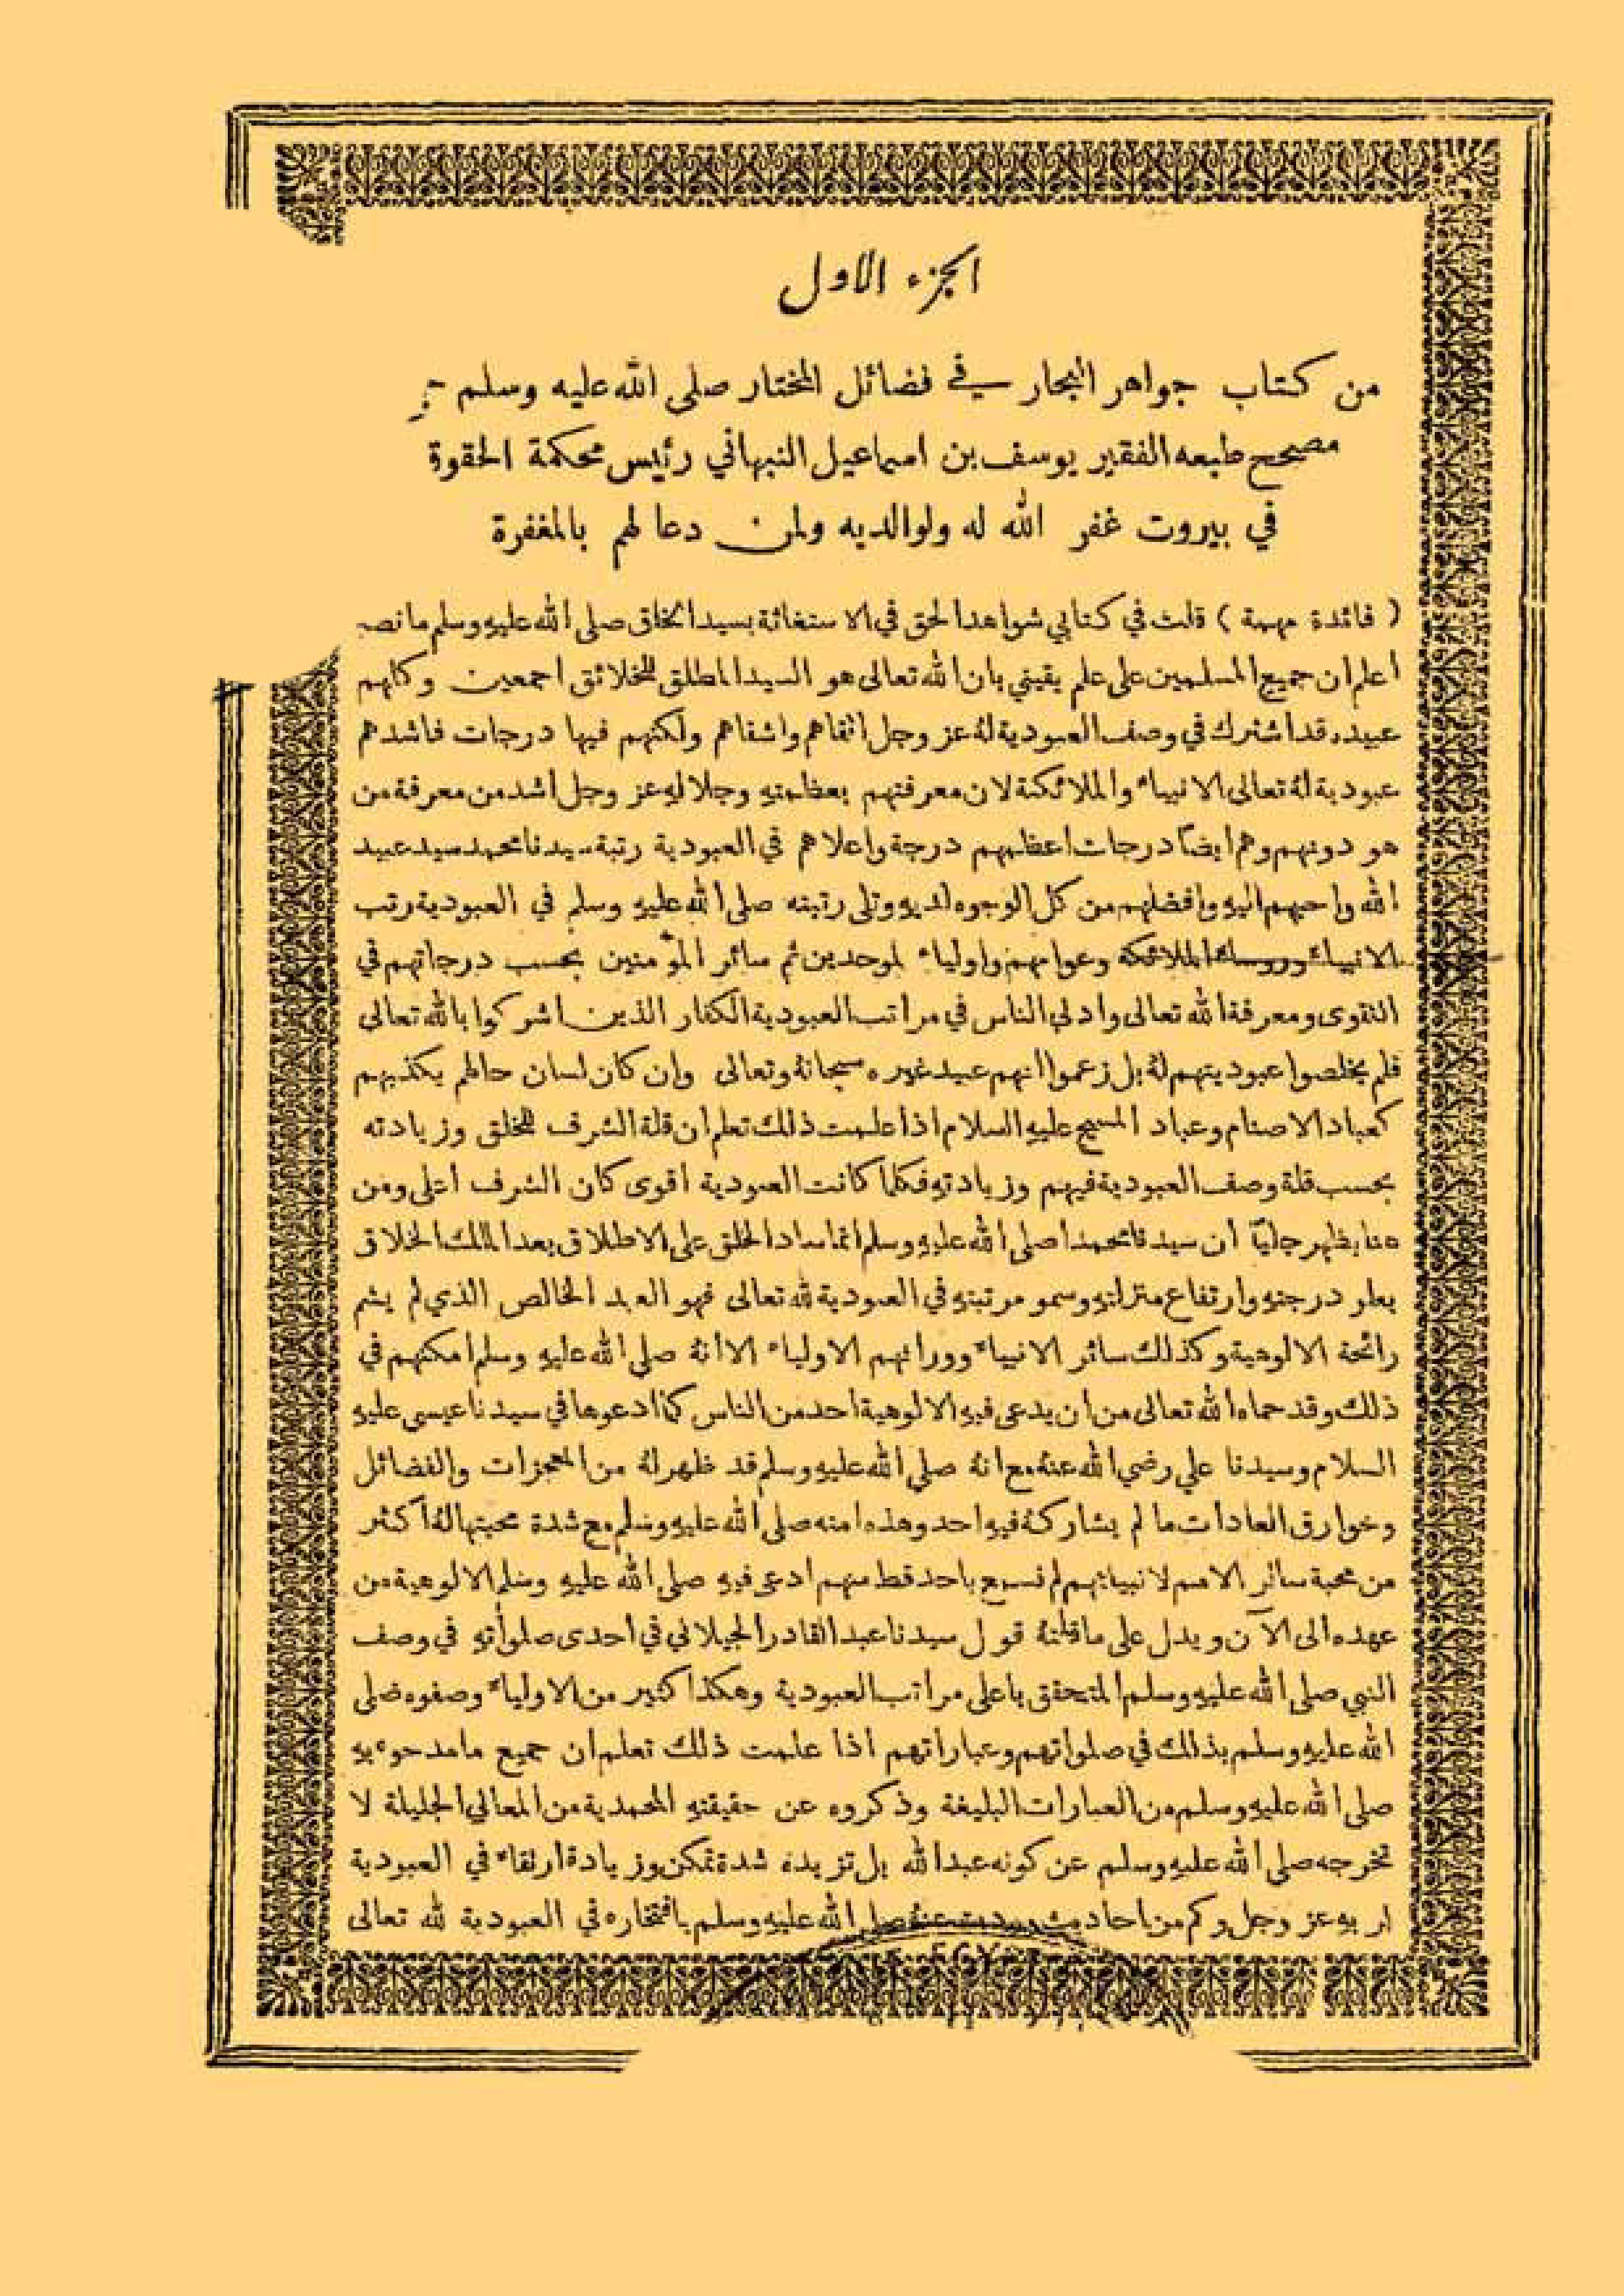 الجزء الاول
من كتاب جواهر البحار في فضائل المختار صلى الله عليه وسلم
مصحح طبعه الفقير يوسف بن اسماعيل النبهاني رئيس محكمة الحقوق
في بيروت غفر الله له ولوالديه ولمن دعا لهم بالمغفرة
( فائدة مهمة ) قلت في كتابي شواهد الحق في الاستغاثة بسيد الخلق صلى الله عليه وسلم ما نصه
اعلم ان جميع المسلمين على علم يقيني بان الله تعالى هو السيد المطلق للخلائق اجمعين وكلهم
عبيده قد اشترك في وصف العبودية له عز وجل اتقاهم واشقاهم ولكنهم فيها درجات فاشدهم
عبودية له تعالى الانبياء والملائكة لان معرفتهم بعظمته وجلاله عز وجل اشد من معرفة من
هو دونهم وهم ايضاً درجات اعظمهم درجة واعلاهم في العبودية رتبة سيدنا محمد سيد عبيد
الله واحبهم اليه وافضلهم من كل الوجوه لديه وتلى رتبته صلى الله عليه وسلم في العبودية رتب
الانبياء ورؤساء الملائكة وعوامهم واولياء لموحدين ثم سائر المؤمنين بحسب درجاتهم في
التقوى ومعرفة الله تعالى وادنى الناس في مراتب العبودية الكفار الذين اشركوا بالله تعالى
فلم يخلصوا عبوديتهم له بل زعموا أنهم عبيد غيره سبحانه وتعالى وان كان لسان حالهم يكذبهم
كعباد الاصنام وعباد المسيح عليه السلام اذا علمت ذلك تعلم ان قلة الشرف للخلق وزيادته
بحسب قلة وصف العبودية فيهم وزيادته فكلما كانت العبودية أقوى كان الشرف أعلى ومن
هنا يظهر جلياً أن سيدنا محمدا صلى الله عليه وسلم انما ساد الخلق على الاطلاق بعد الملك الخلاق
بعلو درجته وارتفاع منزلته وسمو مرتبته في العبودية لله تعالى فهو العبد الخالص الذي لم يشم
رائحة الالوهية وكذلك سائر الانبياء وورائهم الاولياء الا أنه صلى الله عليه وسلم أمكنهم في
ذلك وقد حماه الله تعالى من ان يدعى فيه الالوهية احد من الناس كما ادعوها في سيدنا عيسى عليه
السلام وسيدنا علي رضي الله عنه مع انه صلى الله عليه وسلم قد ظهر له من المعجزات والفضائل
وخوارق العادات ما لم يشاركه فيه احد وهذه امته صلى الله عليه وسلم مع شدة محبتها له أكثر
من محبة سائر الامم لانبيائهم لم نسمع باحد قط منهم ادعى فيه صلى الله عليه وسلم الالوهية من
عهده الى الآن ويدل على ما قلته قول سيدنا عبد القادر الجيلاني في أحدى صلواته في وصف
النبي صلى الله عليه وسلم المتحقق باعلى مراتب العبودية وهكذا كثير من الاولياء وصفوه صلى
الله عليه وسلم بذلك في صلواتهم وعباراتهم اذا علمت ذلك تعلم ان جميع ما مدحوه به
صلى الله عليه وسلم من العبارات البليغة وذكروه عن حقيقته المحمدية من المعاني الجليلة لا
تخرجه صلى الله عليه وسلم عن كونه عبد الله بل تزيده شدة تمكن وزيادة ارتقاء في العبودية
لربه عز وجل وكم من احاديث وردت عنه صلى الله عليه وسلم بافتخاره في العبودية لله تعالى